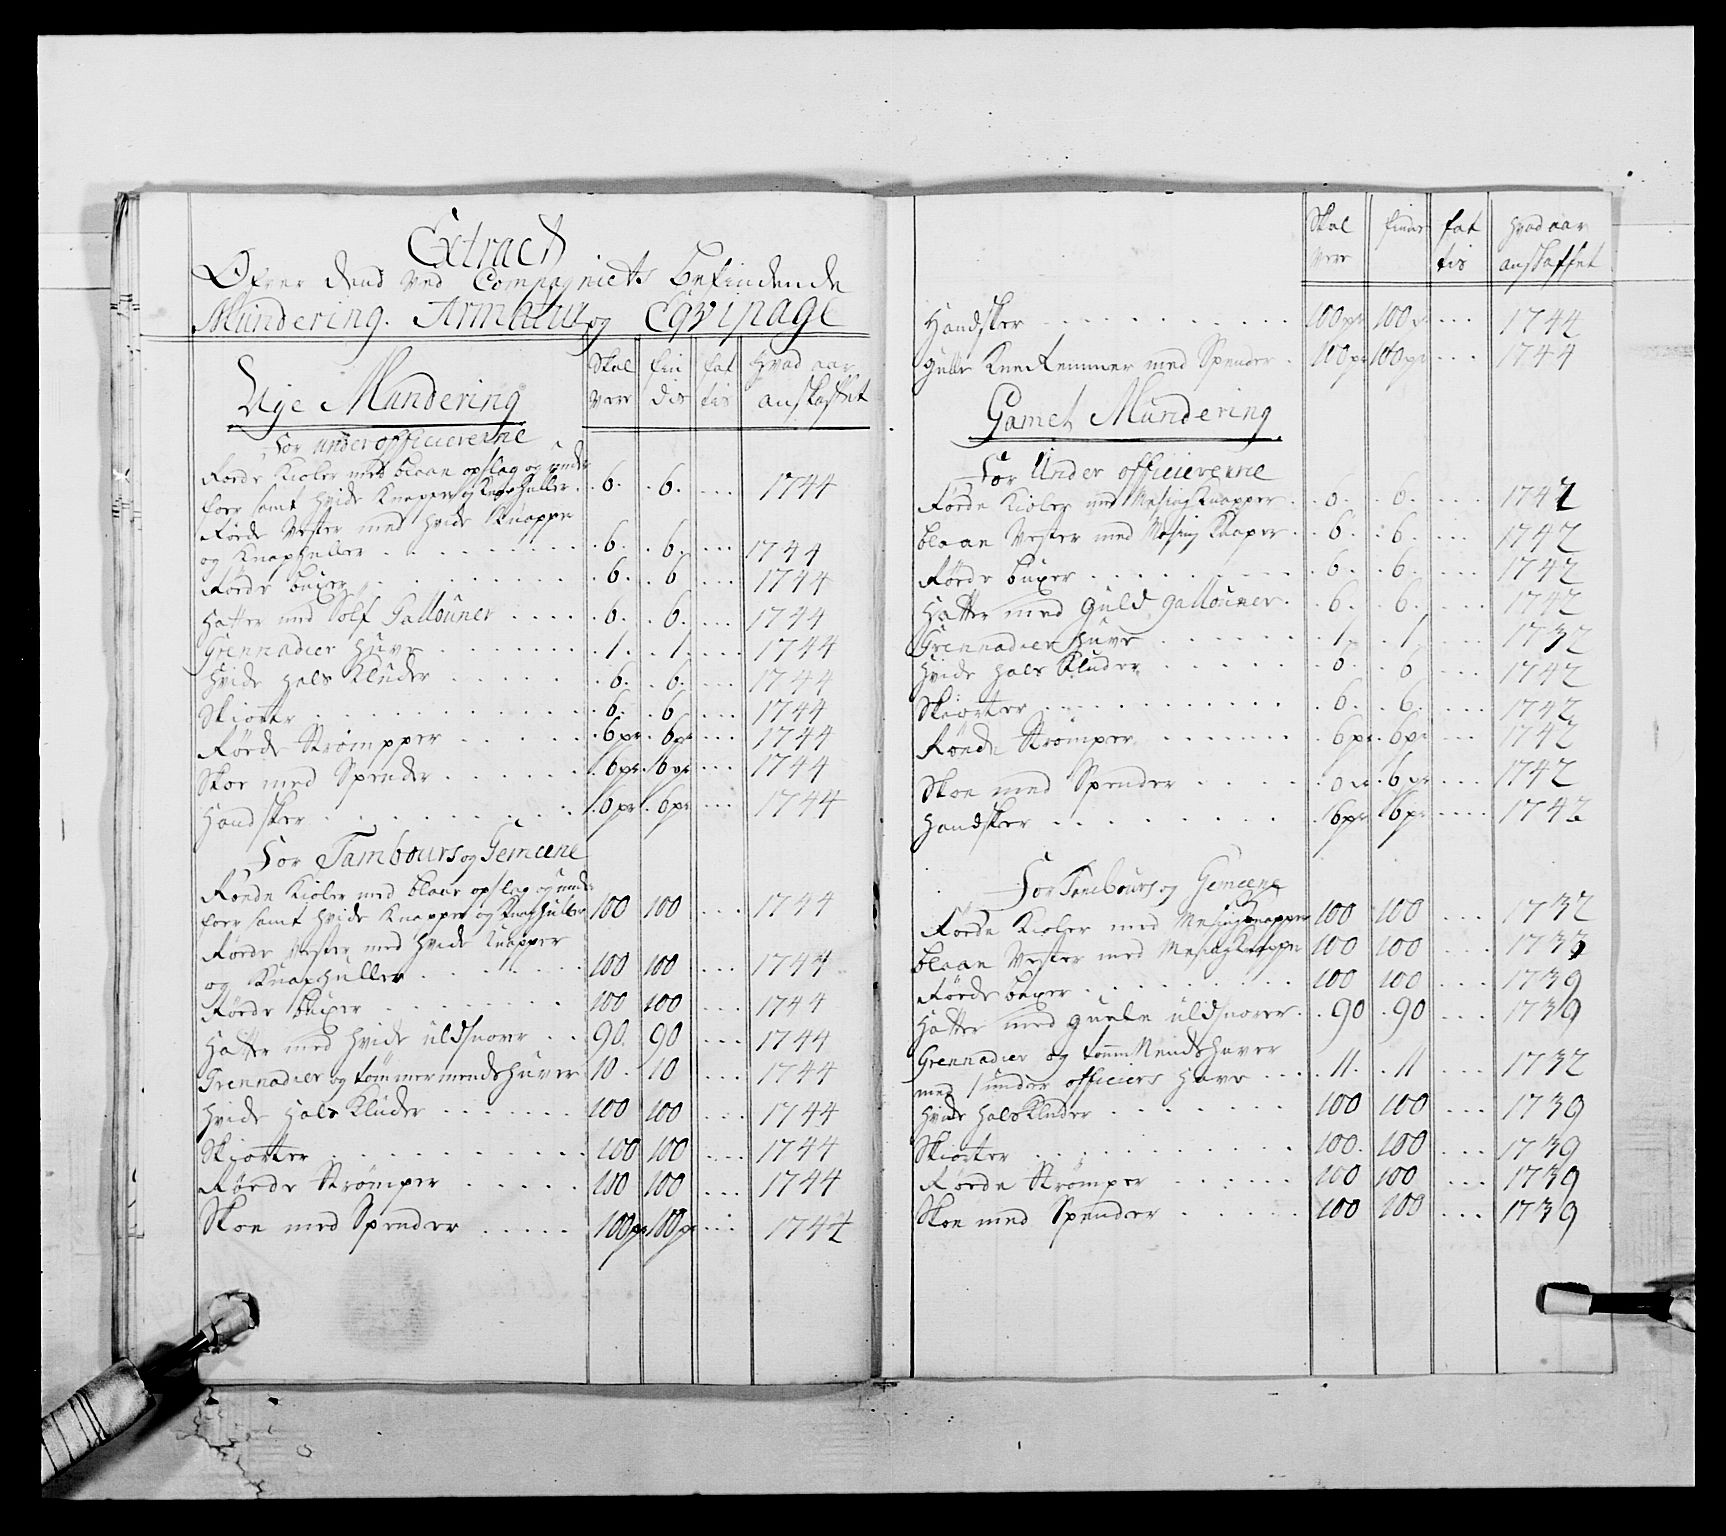 Extract
Øfver dend ved Compagniets befindende
Mundering. Armatur og Eqvipage
Nye Mundering
Skal være
fin dis
fat tis
hvad aar anskaffet
For underofficiererne
Røede Kioler med blaae opslag og under
foer samt hvide Knapper og Knaphuller . 6. . 6. ... 1744
Røede Vester med hvide Knapper
og Knaphuller . . . 6. . 6. ... 1744
Røede buxer . . . 6. . 6 ... 1744
Hatter med Sølf Gallouner . . . 6. . 6. ... 1744
Grennadier Huve . . . 1. . 1. ... 1744
Hvide Hals Kluder . . . 6. . 6. ... 1744
Skiorter . . . 6. . 6 ... 1744
Røede Strømpper . . . 6 pr . 6 pr ... 1744
Skoe med Spender . . . 6 pr . 6 pr ... 1744
Handsker . . . 6 pr . 6 pr ... 1744
For Tambours og Gemeene
Røede Kioler med blaae opslag og under
foer samt hvide Knapper og Knaphuller 100 100 ... 1744
Røede Vester med hvide Knapper
og Knaphuller . . . 100 100 ... 1744
Røede buxer . . . 100 100 ... 1744
Hatter med hvide uldsnorer . . 90. 90 ... 1744
Grennadier og tømmermendshuver 10. 10 ... 1744
Hvide Hals Kluder . . . 100 100 ... 1744
Skiorter . . . 100 100 ... 1744
Røede Strømper . . . 100 100 ... 1744
Skoe med Spender . . . 100 pr 100 pr ... 1744
Skal være
findes
fat tis
hvad aar anskaffet
Handsker . . . 100 pr 100 pr ... 1744
Gule Knee Remmer med Spender . 100 pr 100 pr ... 1744
Gamel Mundering
For Under officiererne
Røede Kioler med Mesing Knapper . 6. . 6. ... 1742
blaae Vester med Mesing Knaper . 6. . 6. ... 1742
Røede buxer . . . 6. . 6. ... 1742
Hatter med Guld gallouner . 6. . 6. ... 1742
Grennadier huve . . . 1. . 1 ... 1732
Hvide Hals Kluder . . . 6. 6 ... 1742
Skiorter . . . 6. . 6. ... 1742
Røede Strømper . . . 6 pr . 6 pr ... 1742
Skoe med Spender . . . 6 pr . 6 pr ... 1742
Handsker . . . 6 pr . 6 pr ... 1742
For Tambours og Gemeene
Røede Kioler med Mesing Knapper 100 100 ... 1732
blaae Vester med Mesing Knapper 100 100 ... 1733
Røede buxer . . . 100 100 ... 1739
Hatter med guele uldsnorer . . 90 . 90 ... 1739
Grennadier og tømmermendshuver
med 1 under officiers Huve . . . 11. . 11 ... 1732
Hvide Hals Kluder . . . 100 100 ... 1739
Skiorter . . . 100. 100 ... 1739
Røede Strømper . . . 100 100 ... 1739
Skoe med Spender . . . 100 100 ... 1739